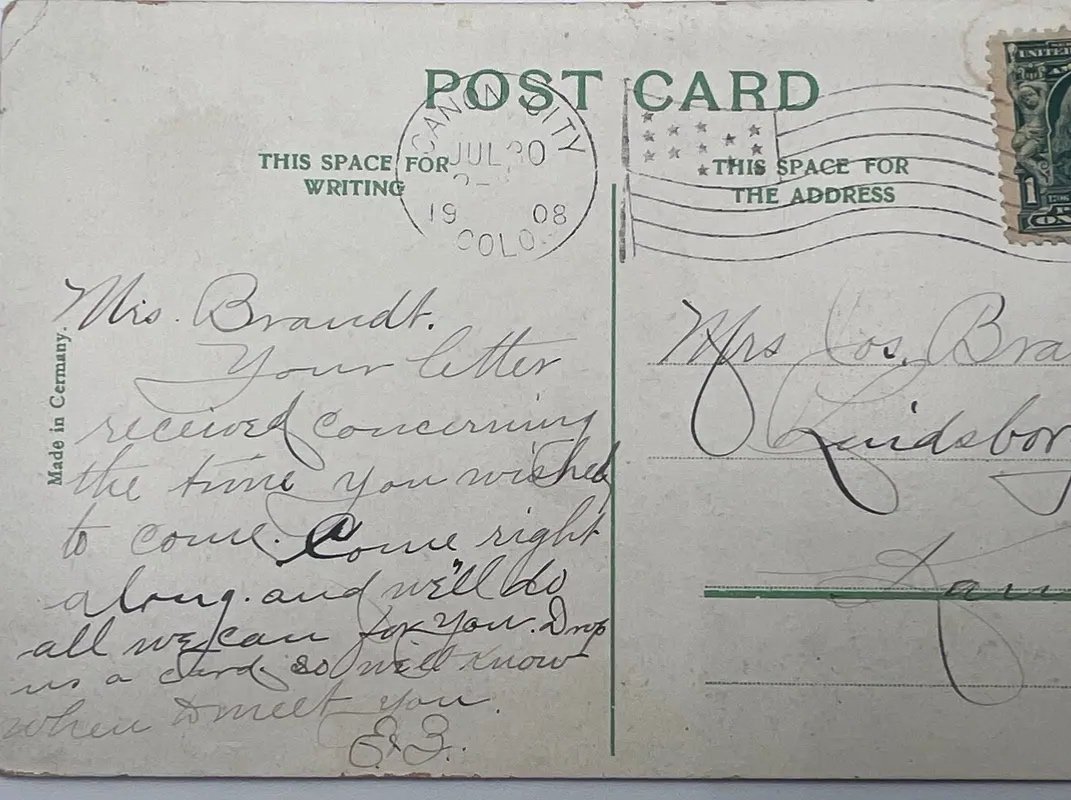 POST CARD
CANON CITY
JUL 30
1908
COLO.
THIS SPACE FOR
WRITING
THIS SPACE FOR
THE ADDRESS
UNITED
1
Made in Germany.
Mrs. Brandt.
Your letter
received concerning
the time you wished
to come. Come right
along. and we'll do
all we can for you. Drop
us a card so we'll know
when to meet you.
Mrs Jos. Bra
Lindsbor
Kan